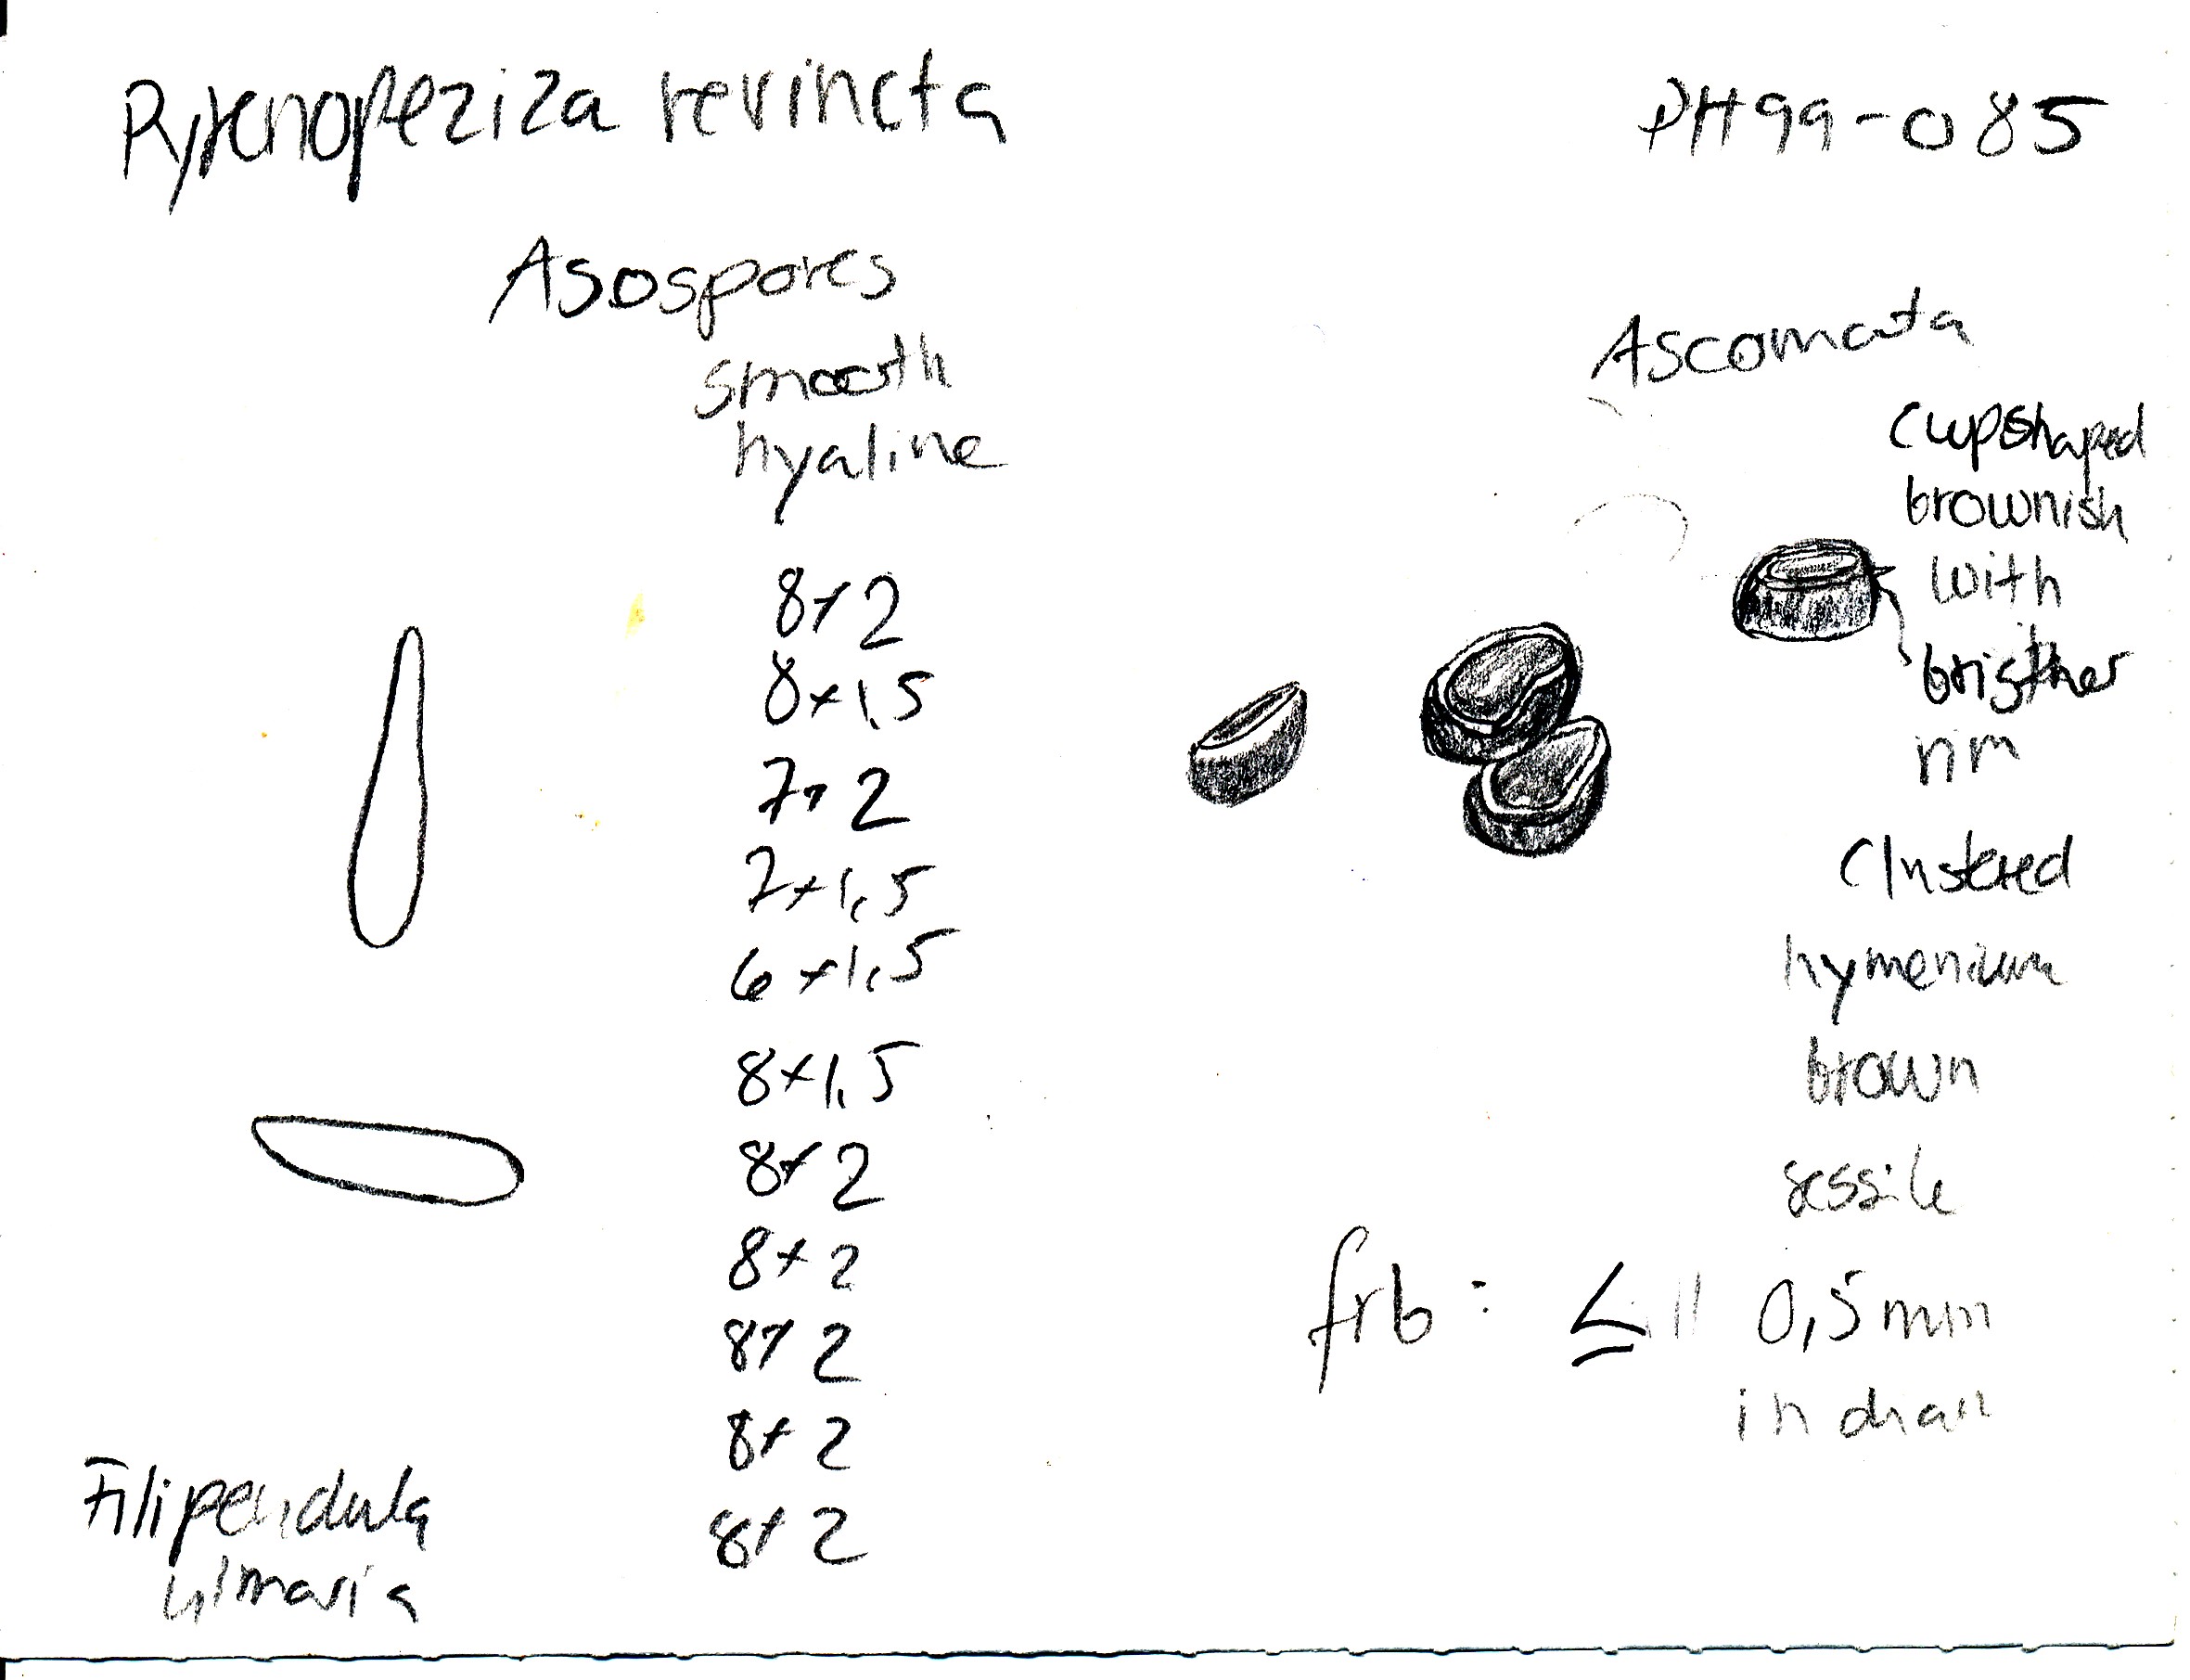 Pyrenopeziza revincta
PH99-085
Asospores
smooth
hyaline
8x2
8x1,5
7x2
7x1,5
6x1,5
8x1,5
8x2
8x2
8x2
8x2
8x2
Filipendula
ulmaria
Ascomata
cupshaped
brownish
with
rim
Clustered
hymenium
brown
sessile
frb: ≤ 0,5mm
in diam